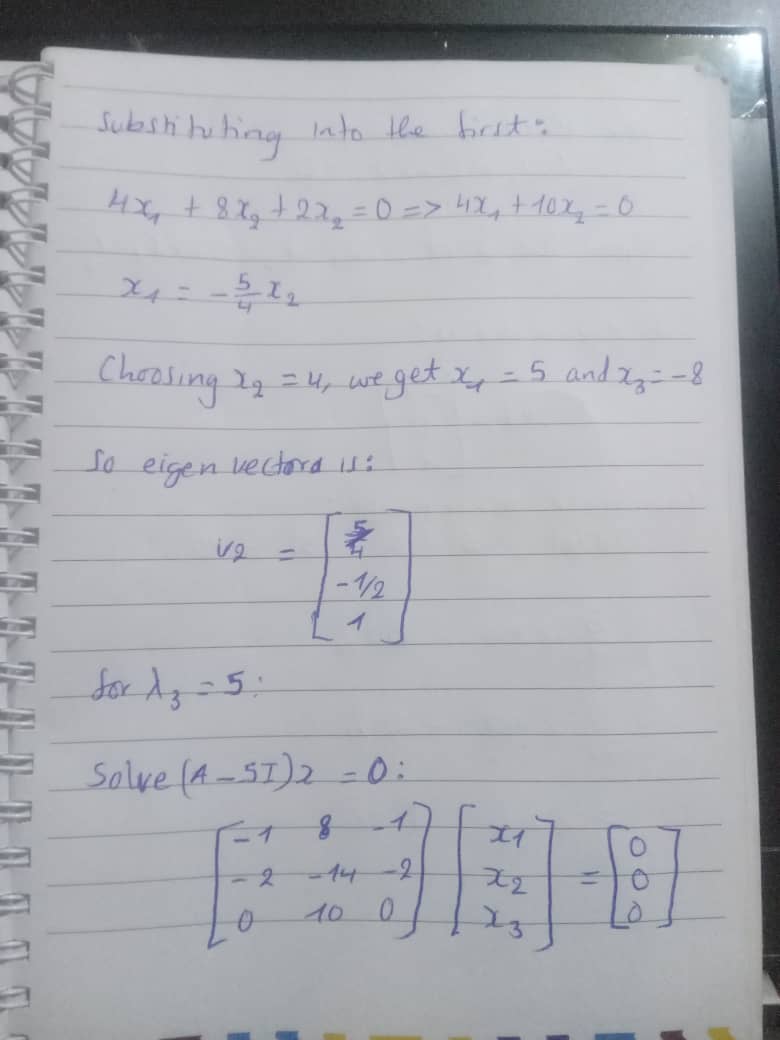 Substituting into the first:
4x₁ + 8x₂ + 2x₂ = 0 => 4x₁ + 10x₂ = 0
x₁ = -5/4 x₂
Choosing x₂ = 4, we get x₁ = 5 and x₃ = -8
So eigen vectora is:
v2 = [5/4
-1/2
1]
for λ₃ = 5:
Solve (A - 5I)2 = 0:
[-1 8 -1] [x1] [0]
[-2 -14 -2] [x2] = [0]
[0 10 0] [x3] [0]